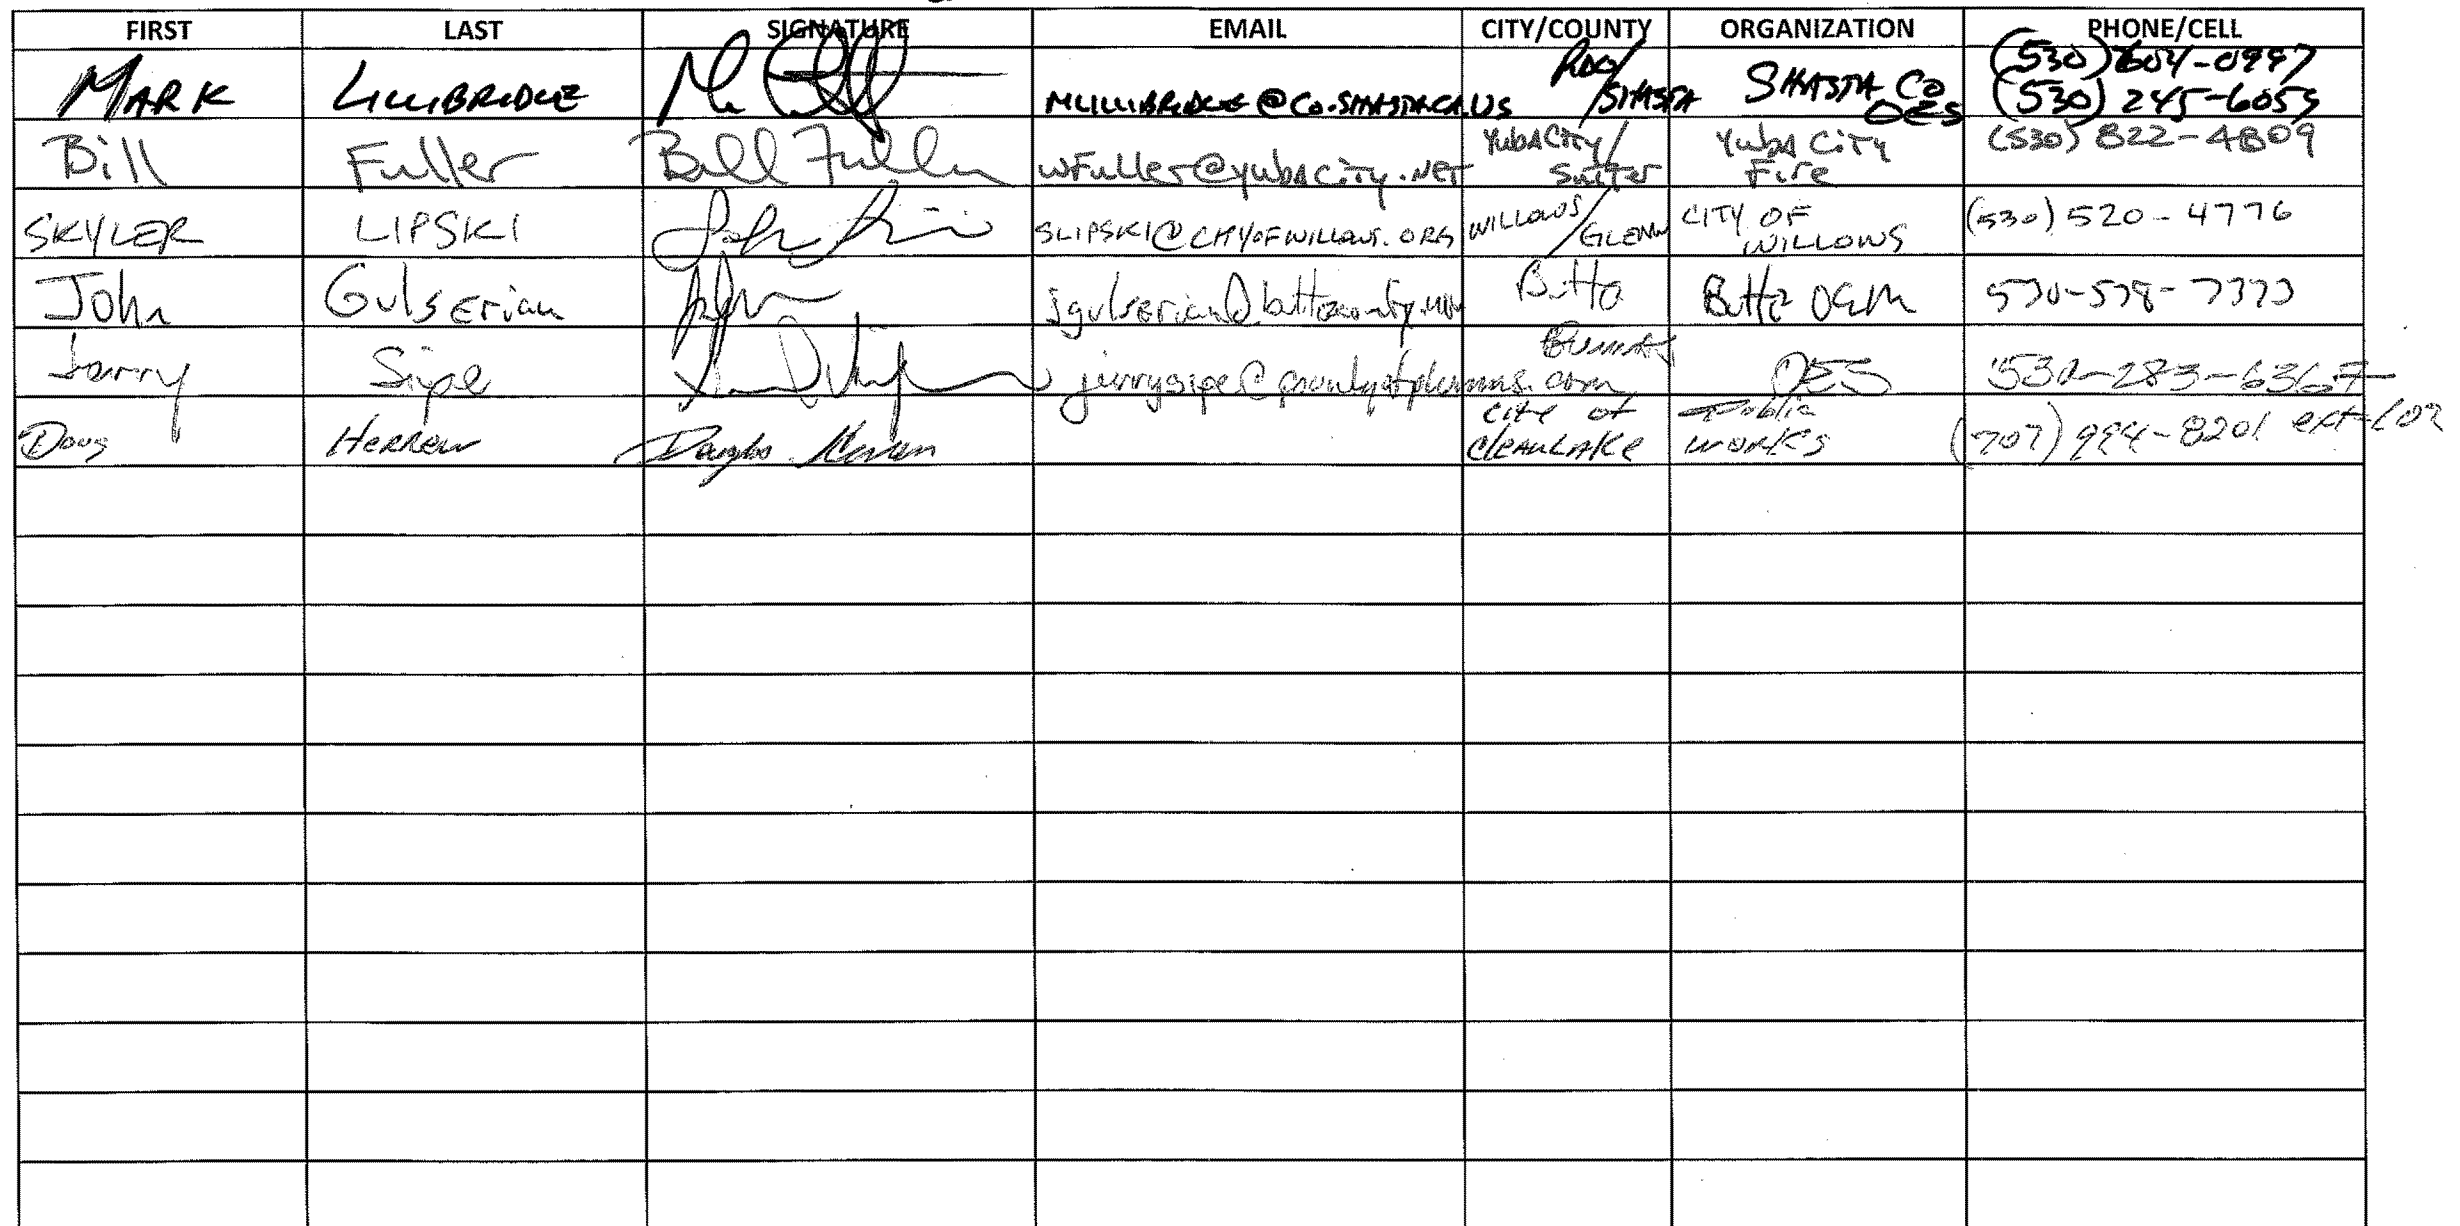 FIRST LAST SIGNATURE EMAIL CITY/COUNTY ORGANIZATION PHONE/CELL
MARK LILLIBRIDGE MLILLIBRIDGE@CO.SHASTA.CA.US RDG/SHASTA SHASTA CO OES (530) 604-0997 (530) 245-6059
Bill Fuller Bill Fuller wFuller@yubacity.NET YubACity/Sutter YubA City Fire (530) 822-4809
SKYLER LIPSKI SLIPSKI@CITYOFWILLOWS.ORG WILLOWS/GLENN CITY OF WILLOWS (530) 520-4776
John Gulserian jgulserian@buttecounty.net Butte Butte OEM 530-578-7373
Jerry Sipe jerrysipe@countyofplumas.com Plumas OES 530-283-6367
Doug Herren Douglas Herren city of CleaRLAKe Public works (707) 994-8201 ext